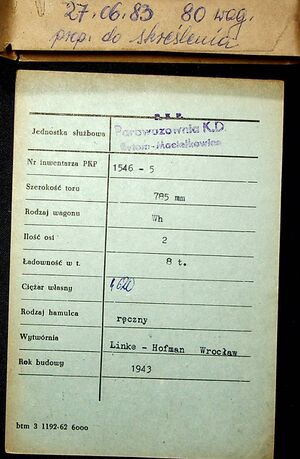 27.06.83 80 wag.
prop. do skreślenia
P.K.P.
Jednostka służbowa Parowozownia K.D.
Bytom-Maciejkowice
Nr inwentarza PKP 1546 - 5
Szerokość toru 785 mm
Rodzaj wagonu Wh
Ilość osi 2
Ładowność w t. 8 t.
Ciężar własny 4620
Rodzaj hamulca ręczny
Wytwórnia Linke - Hofman Wrocław
Rok budowy 1943
btm 3 1192-62 6000